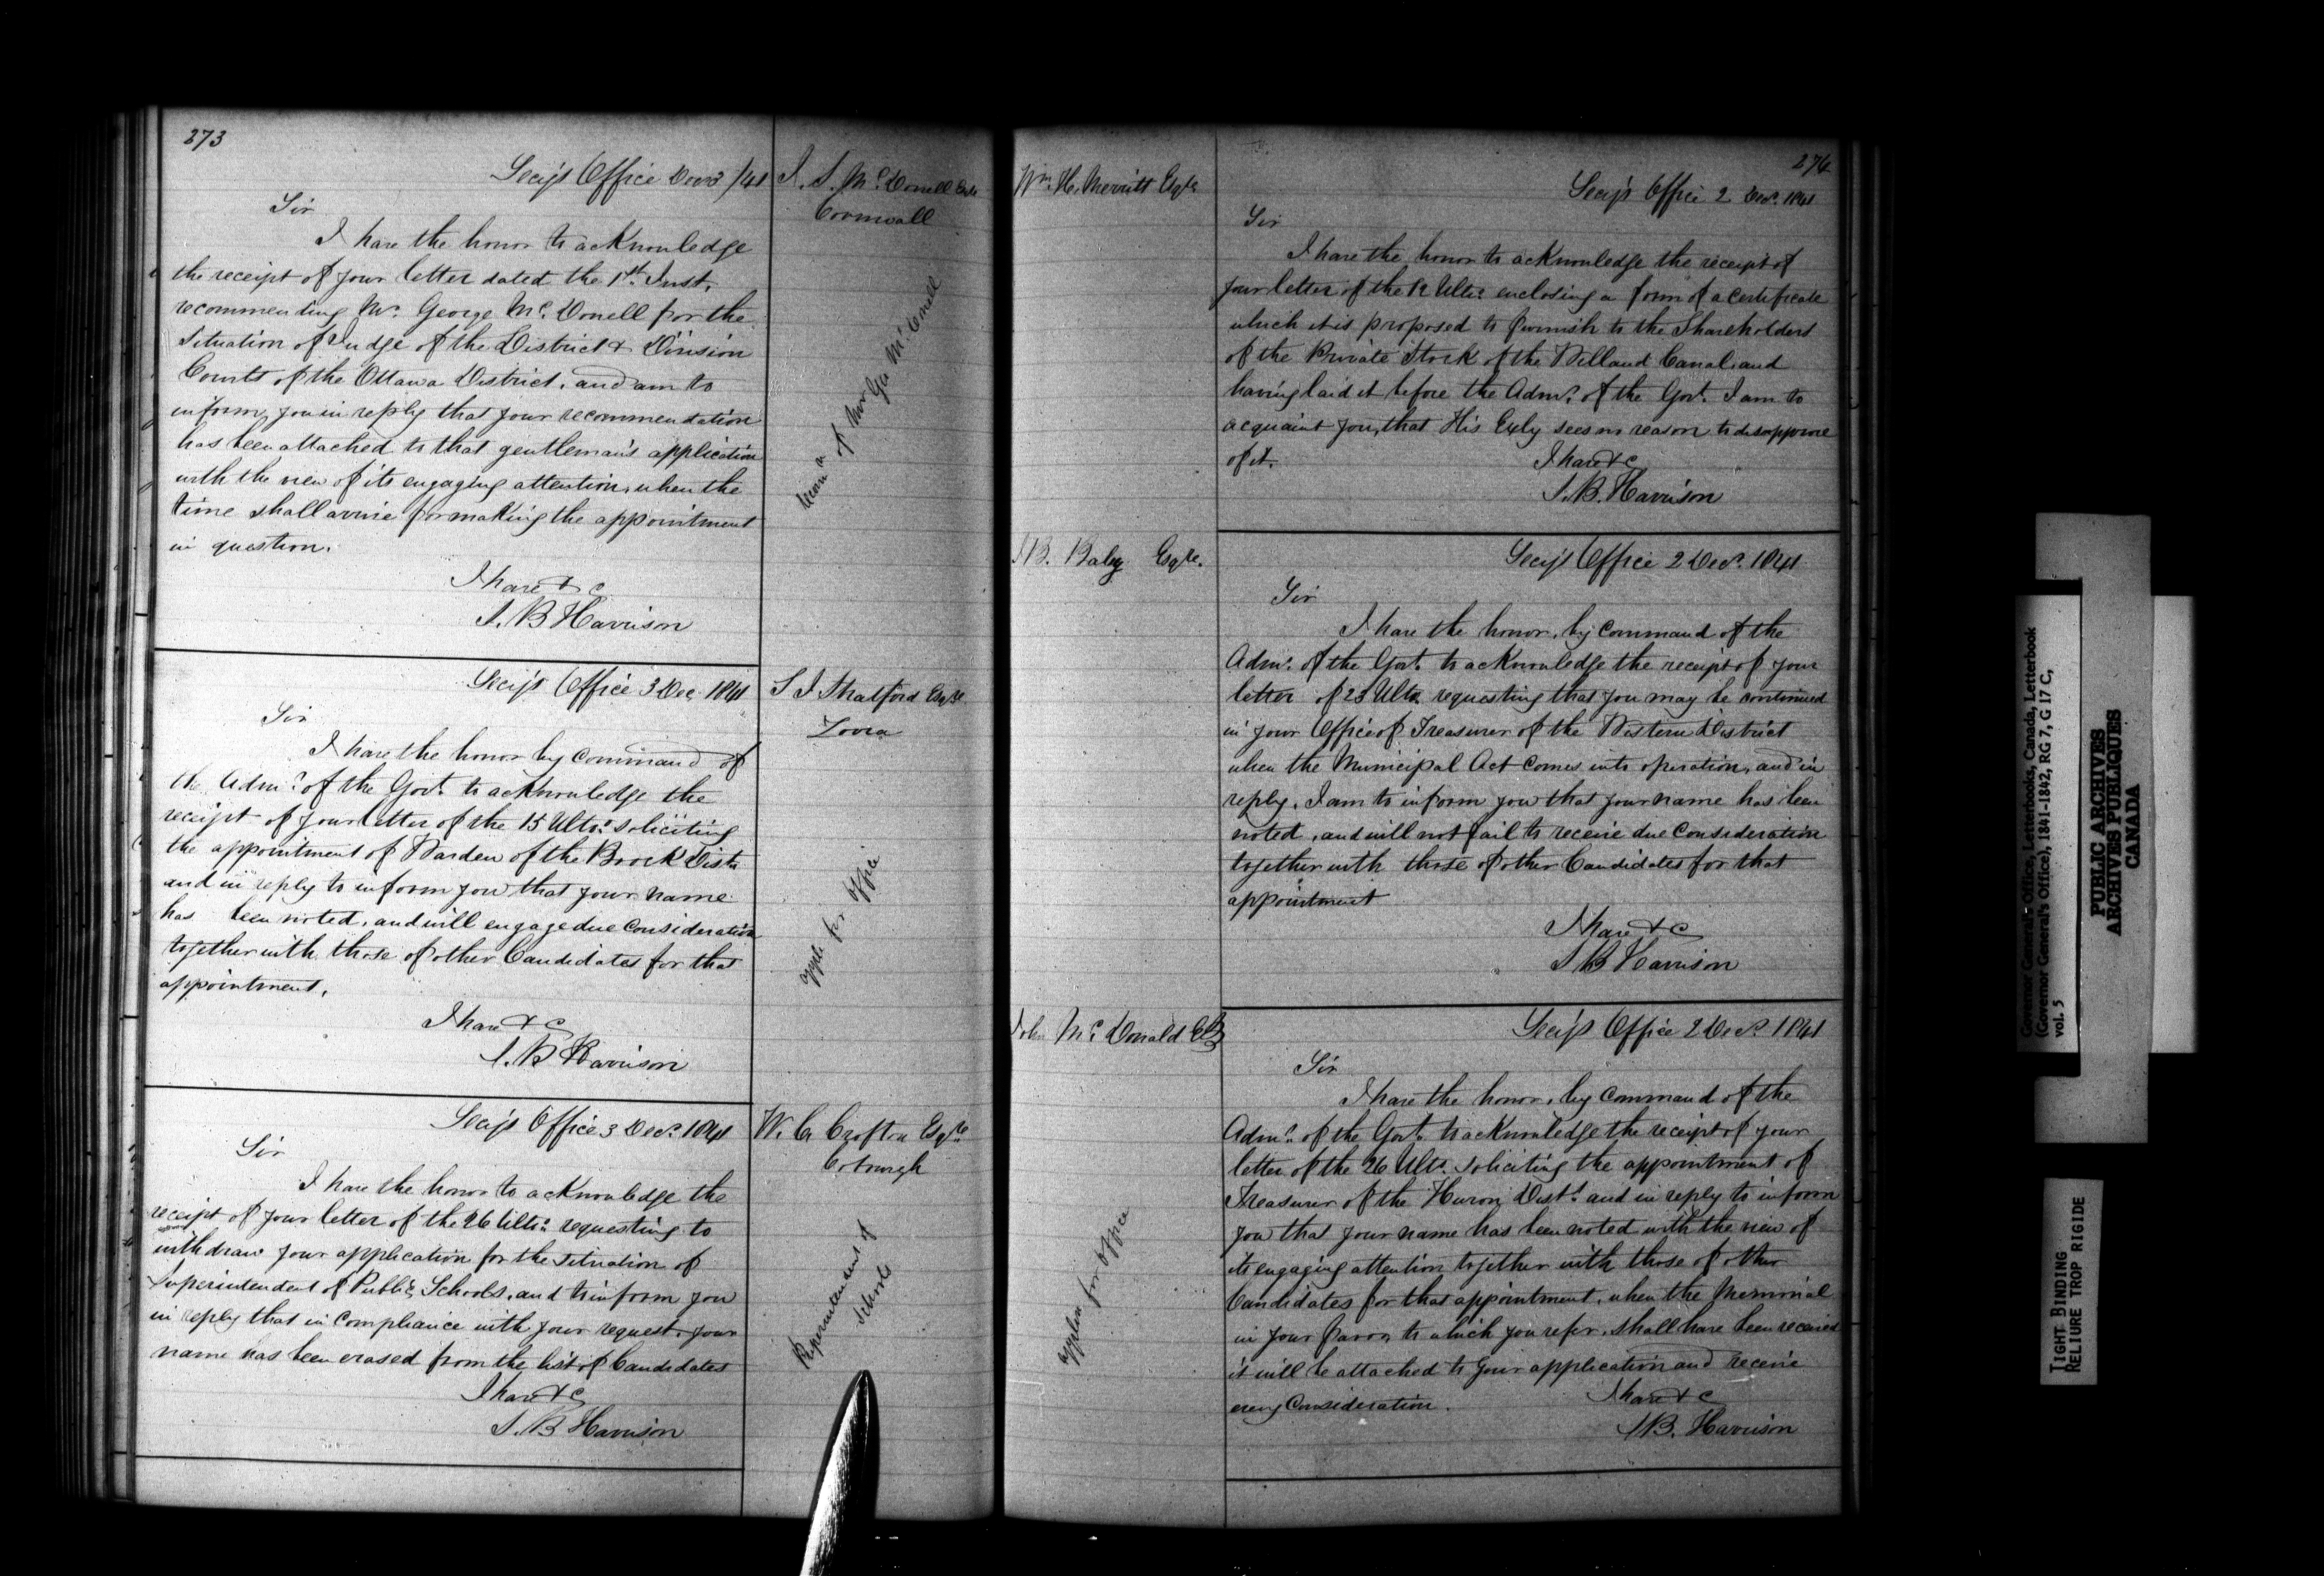 273
Secy's Office Dec 3/41
J. S. McDonell Esqr
Cornwall
Sir
I have the honor to acknowledge
the receipt of your letter dated the 1st Inst.
recommending Mr. George McDonell for the
Situation of Judge of the District & Division
Courts of the Ottawa District, and am to
inform you in reply that your recommendation
has been attached to that gentleman's application
with the view of its engaging attention, when the
time shall arrive for making the appointment
in question.
I have &c
S. B Harrison
of Mr Geo McDonell
Secy's Office 3 Dec 1841
S J Stratford Esqre
Sir
I have the honor by Command of
the Admr. of the Govt. to acknowledge the
receipt of your letter of the 15 Ulto. soliciting
the appointment of Warden of the Brock Distr
and in reply to inform you that your name
has been noted, and will engage due Consideration
together with those of other Candidates for that
appointment.
I have &c
S. B Harrison
for Office
Secy's Office 3 Decr. 1841
W. G Crofton Esqre
Cobourgh
Sir
I have the honor to acknowledge the
receipt of your letter of the 26 Ulto. requesting to
withdraw your application for the Situation of
Superintendent of Public Schools, and to inform you
in reply that in Compliance with your request, your
name has been erased from the list of Candidates
I have &c
S. B Harrison
of
Schools
274
Wm. H. Merritt Esqre
Secy's Office 2 Decr. 1841
Sir
I have the honor to acknowledge the receipt of
your letter of the 12 Ulto. enclosing a form of a Certificate
which it is proposed to furnish to the Shareholders
of the Private Stock of the Welland Canal, and
having laid it before the Admr. of the Govt. I am to
acquaint you, that His Exly sees no reason to disapprove
of it.
I have &c
S. B. Harrison
J B. Baby Esqre.
Secy's Office 2 Decr. 1841
Sir
I have the honor, by Command of the
Admr. of the Govt. to acknowledge the receipt of your
letter of 23 Ulto. requesting that you may be continued
in your Office of Treasurer of the Western District
when the Municipal Act comes into operation, and in
reply, I am to inform you that your name has been
noted, and will not fail to receive due Consideration
together with those of other Candidates for that
appointment
I have &c
S B Harrison
John McDonald Esqr
Secy's Office 2 Decr. 1841
Sir
I have the honor, by Command of the
Admr. of the Govt. to acknowledge the receipt of your
letter of the 26 Ulto. soliciting the appointment of
Treasurer of the Huron Distt. and in reply to inform
you that your name has been noted with the view of
its engaging attention together with those of other
Candidates for that appointment, when the Memorial
in your favor, to which you refer, shall have been received
it will be attached to your application and receive
every Consideration.
I have &c
S B. Harrison
for Office
Governor General's Office, Letterbooks, Canada, Letterbook
(Governor General's Office), 1841-1842, RG 7, G 17 C,
vol. 5
PUBLIC ARCHIVES
ARCHIVES PUBLIQUES
CANADA
TIGHT BINDING
RELIURE TROP RIGIDE